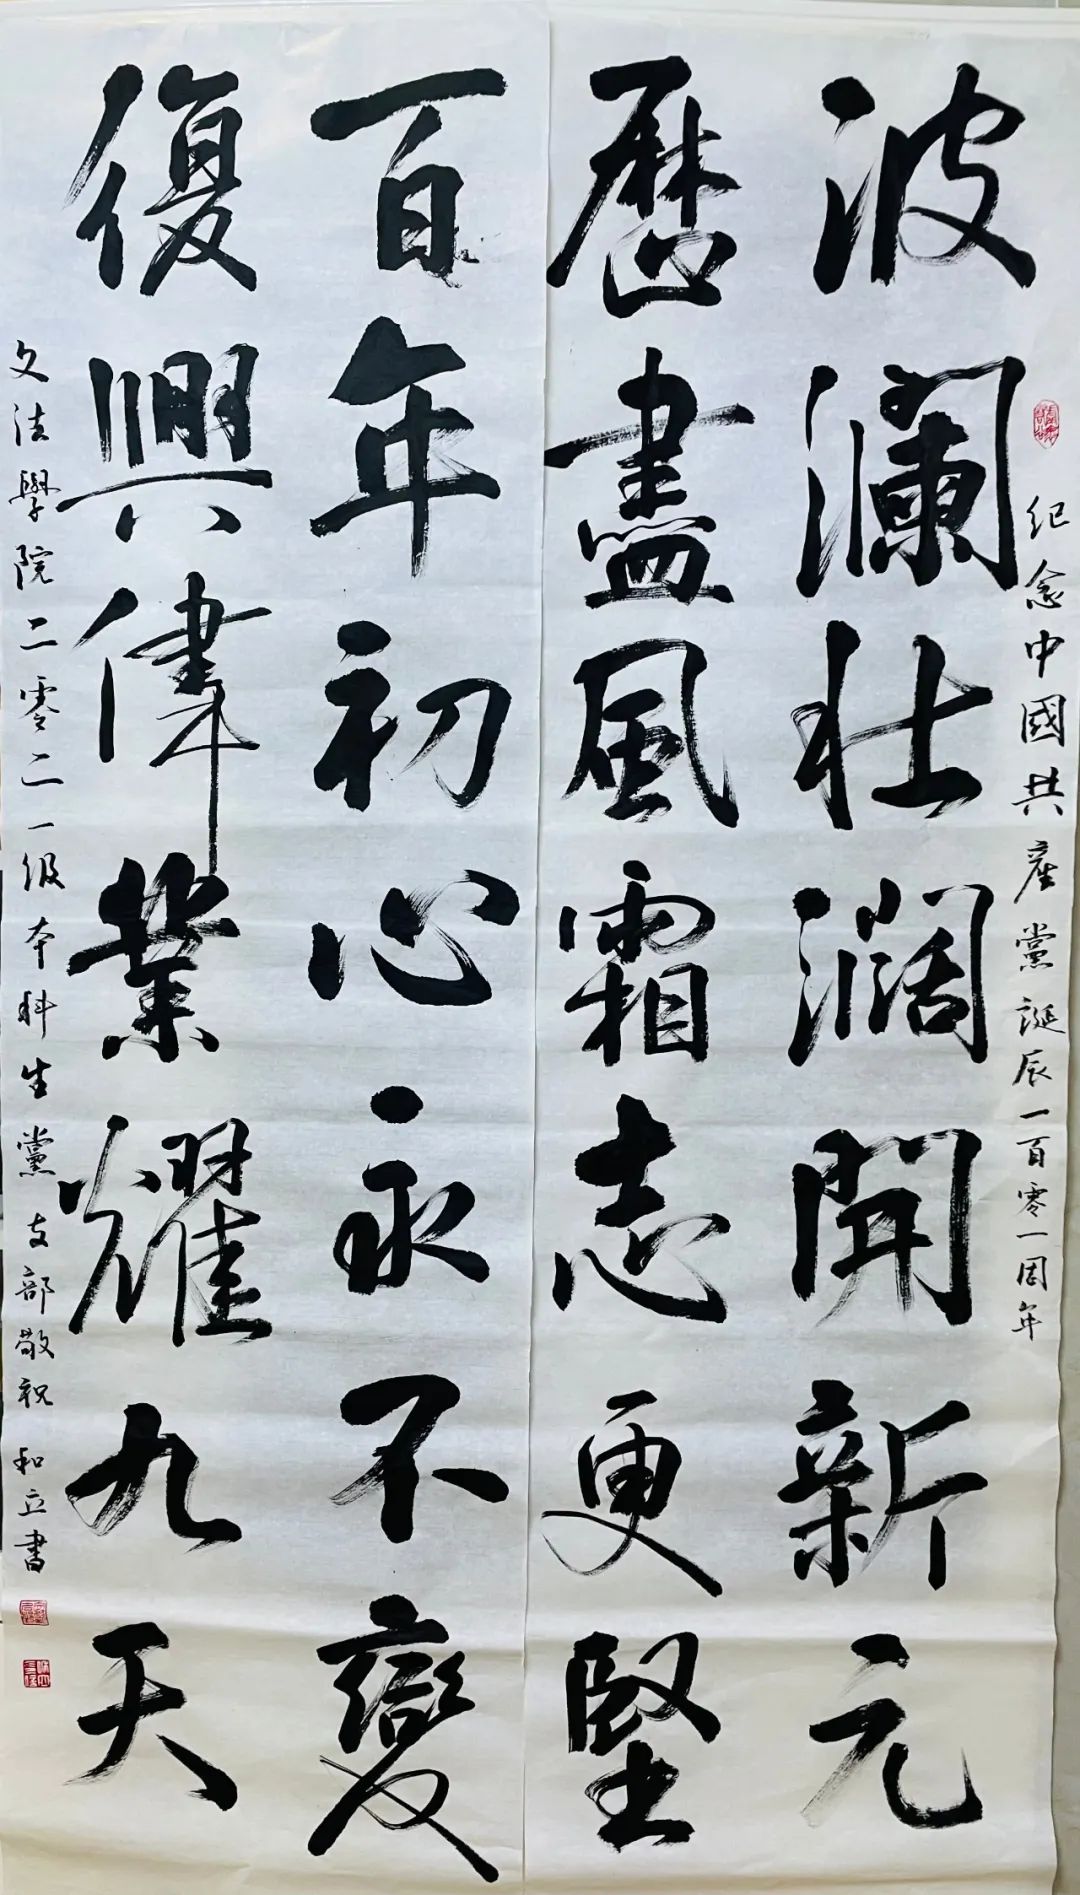 紀念中國共産黨誕辰一百零一周年
波瀾壮濶開新元
歷盡風霜志更堅
百年初心永不變
復興偉業耀九天
文法學院二零二一級本科生黨支部敬祝 和立書